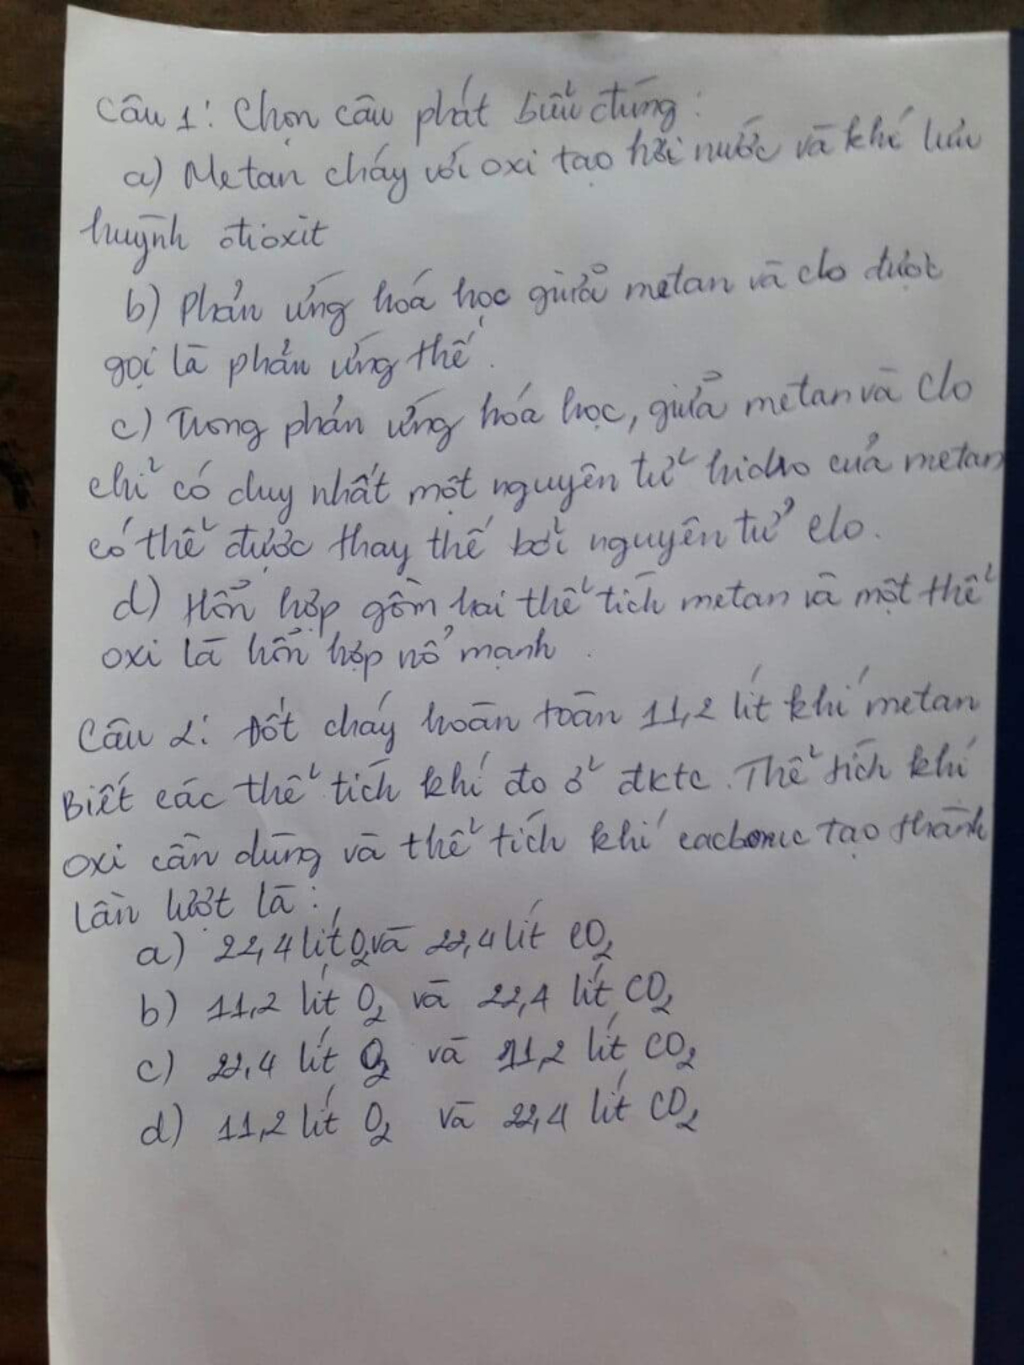 Câu 1: Chọn câu phát biểu đúng:
a) Metan cháy với oxi tạo hơi nước và khí lưu
huỳnh đioxit
b) Phản ứng hoá học giữa metan và clo được
gọi là phản ứng thế.
c) Trong phản ứng hóa học, giữa metan và Clo
chỉ có duy nhất một nguyên tử hidro của metan
có thể được thay thế bởi nguyên tử clo.
d) Hỗn hợp gồm hai thể tích metan và một thể
oxi là hỗn hợp nổ mạnh.
Câu 2: Đốt cháy hoàn toàn 11,2 lít khí metan
Biết các thể tích khí đo ở đktc. Thể tích khí
oxi cần dùng và thể tích khí cacbonic tạo thành
lần lượt là:
a) 22,4 lít O2 và 22,4 lít CO2
b) 11,2 lít O2 và 22,4 lít CO2
c) 22,4 lít O2 và 11,2 lít CO2
d) 11,2 lít O2 và 22,4 lít CO2